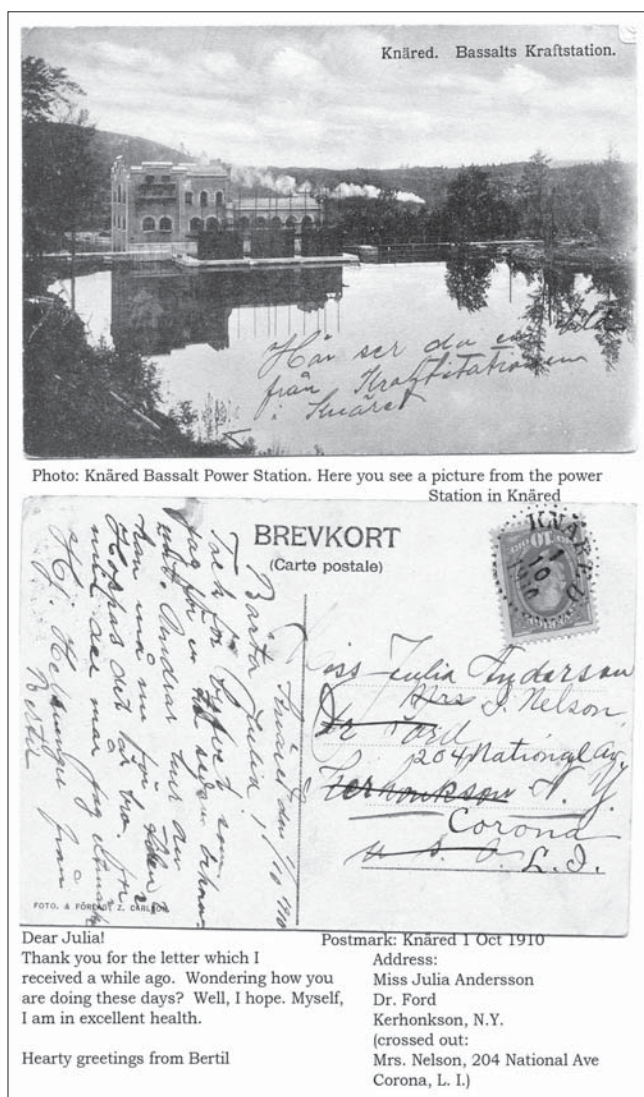 Knäred. Bassalts Kraftstation.
Här ser du en bild
från Kraftstationen
i Knäret
Photo: Knäred Bassalt Power Station. Here you see a picture from the power
Station in Knäred
BREVKORT
(Carte postale)
KNÄRED
1
10
1910
10
Knäret den 1/10 1910
Bästa Julia!
Tack för brefvet som
jag för en tid sedan bekom
Undrar hur du
kan må nu för tiden?
Hoppas det är bra, för
min del mår jag utmärkt
Hj. Helsningar från
Bertil
Miss Julia Anderson
Mrs J. Nelson
Dr Ford
204 National Av.
Kerhonkson N. Y.
Corona
U. S. A. L. I.
FOTO. & FÖRLAG Z. CARLSON
Dear Julia!
Thank you for the letter which I
received a while ago. Wondering how you
are doing these days? Well, I hope. Myself,
I am in excellent health.
Hearty greetings from Bertil
Postmark: Knäred 1 Oct 1910
Address:
Miss Julia Andersson
Dr. Ford
Kerhonkson, N.Y.
(crossed out:
Mrs. Nelson, 204 National Ave
Corona, L. I.)